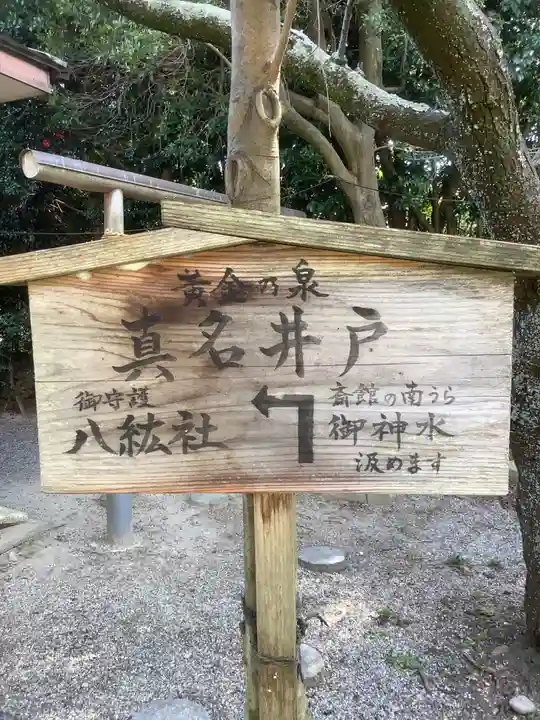 黄金の泉
真名井戸
御守護
八紘社
斎館の南うら
御神水
汲めます